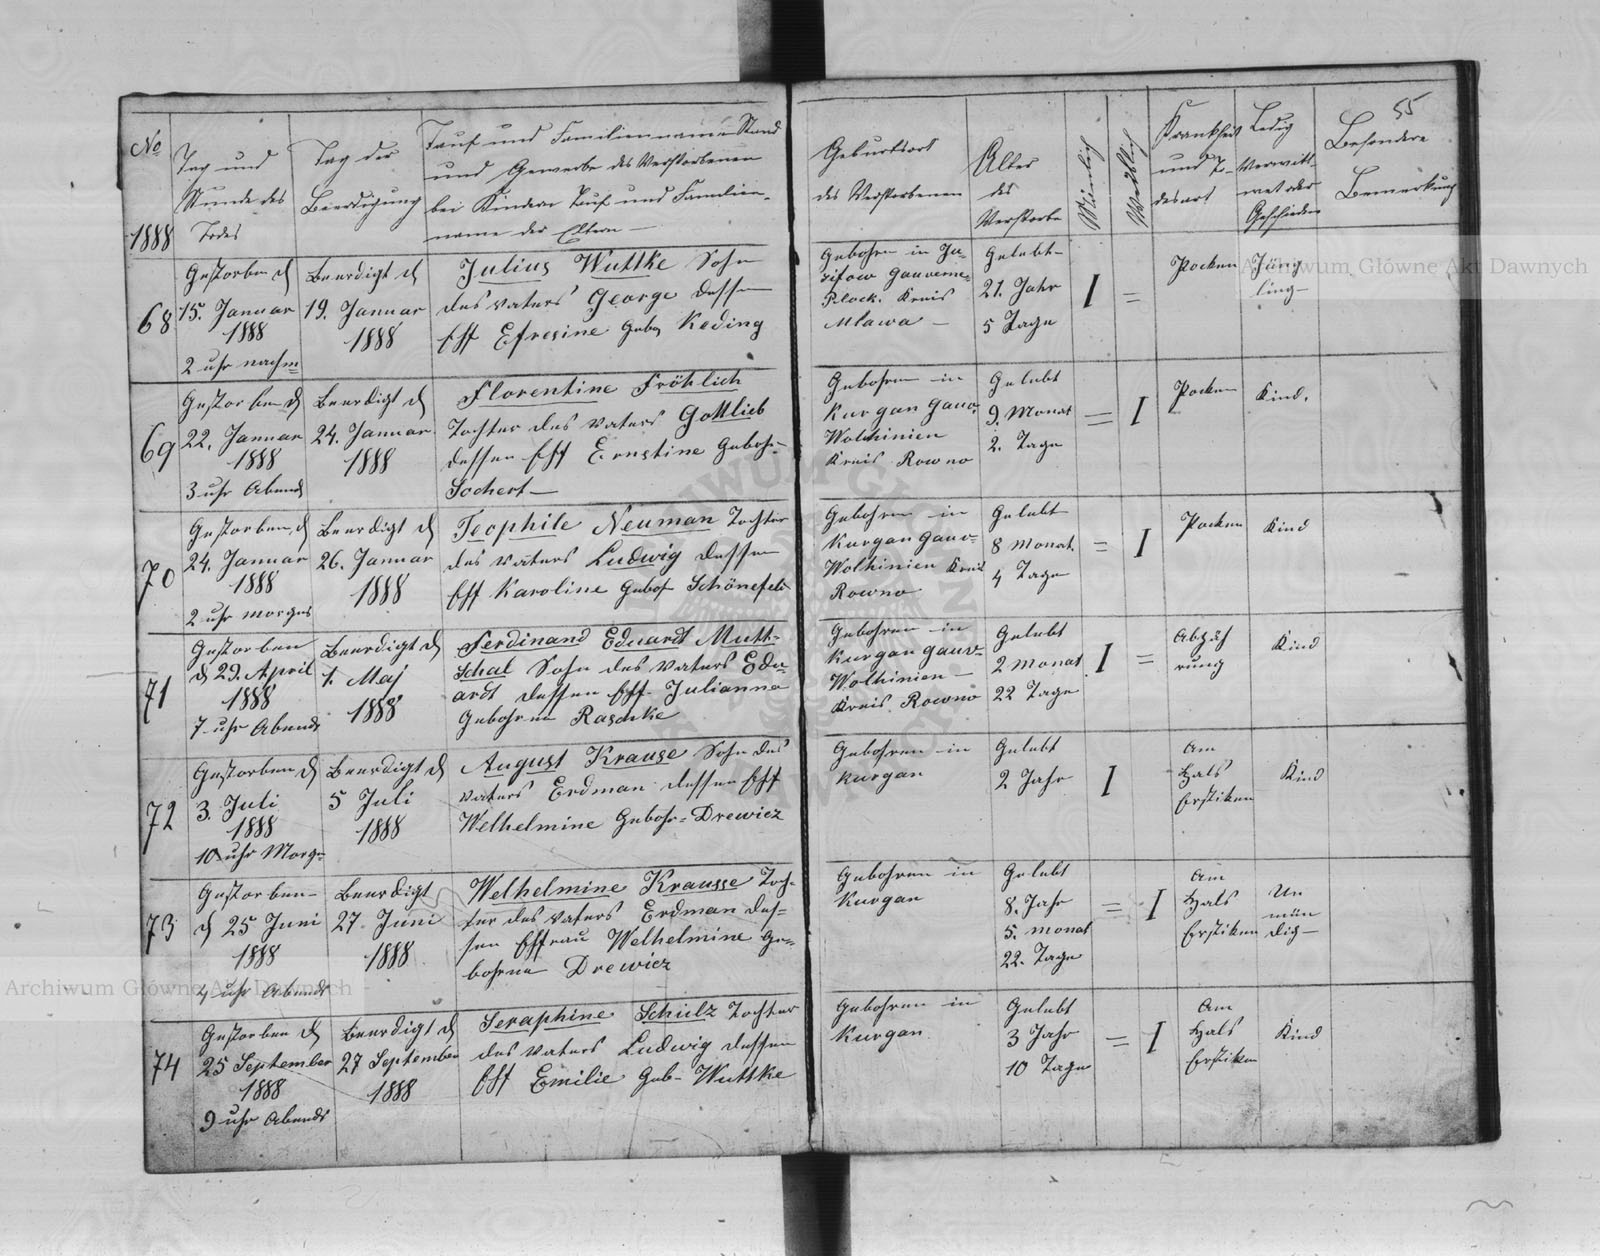 55
No
1888
Tag und
Stunde des
Todes
Tag der
Beerdigung
Tauf und Familienname Stand
und Gewerbe des Verstorbenen
bei Kindern Tauf und Familien-
name der Eltern —
Geburtsort
des Verstorbenen
Alter
des
Verstorbe
Mänlich
Weiblich
Krankheit
und To-
desart
Ledig
Verwitt-
wet oder
Geschieden
Besondere
Bemerkung
68
Gestorben d
15. Januar
1888
2 uhr nachm
Beerdigt d
19. Januar
1888
Julius Wuttke Sohn
des vaters George dessen
Eff Efresine Gebo Keding
Gebohren in Ju-
zifow Gauverne-
Plock. Kreis
Mlawa —
Gelebt-
21. Jahr
5 Tage
I
=
Pocken
Jüng
ling-
69
Gestorben d
22. Januar
1888
3 uhr Abends
Beerdigt d
24. Januar
1888
Florentine Fröhlich
Tochter des vaters Gottlieb
dessen Eff Ernstine Geboh-
Sochert —
Gebohren in
Kurgan Gauv.
Wolhinien
Kreis Rowno
Gelebt
9. Monat
2. Tage
=
I
Pocken
Kind.
70
Gestorben d
24. Januar
1888
2 uhr morges
Beerdigt d
26. Januar
1888
Teophile Neuman Tochter
des vaters Ludwig dessen
Eff Karoline Geboh Schönefeld
Gebohren in
Kurgan Gauv-
Wolhinien Kreis
Rowno
Gelebt
8 monat.
4 Tage
=
I
Pocken
Kind
71
Gestorben
d 29. April
1888
7 uhr Abends
Beerdigt d
1. Maj
1888
Ferdinand Eduardt Mutt-
schal Sohn des vaters Edu-
ardt dessen Eff- Julianna
Gebohren Raschke
Gebohren in
Kurgan gauv-
Wolhinien —
Kreis Rowno
Gelebt
2 monat
22 Tage
I
=
Abzäh
rung
Kind
72
Gestorben d
3. Juli
1888
10 uhr Morge
Beerdigt d
5 Juli
1888
August Krause Sohn des
vaters Erdman dessen Eff
Welhelmine Gebohr= Drewicz
Gebohren in
Kurgan
Gelebt
2 Jahr
I
Am
Hals
Erstiken
Kind
73
Gestorben-
d 25 Juni
1888
4 uhr Abends
Beerdigt
27 Juni
1888
Welhelmine Krausse Toch-
ter des vaters Erdman des=
sen Effrau Welhelmine Ge-
bohrne Drewicz
Gebohren in
Kurgan
Gelebt
8. Jahr
5. monat
22. Tage
=
I
Am
Hals
Erstiken
Un
mün
dig—
74
Gestorben d
25 September
1888
9 uhr Abends
Beerdigt d
27 September
1888
Seraphine Schulz Tochter
des vaters Ludwig dessen
Eff Emilie Geb- Wuttke
Gebohren in
Kurgan
Gelebt
3 Jahr
10 Tage
=
I
Am
Hals
Erstiken
Kind
Archiwum Główne Akt Dawnych
Archiwum Główne Akt Dawnych